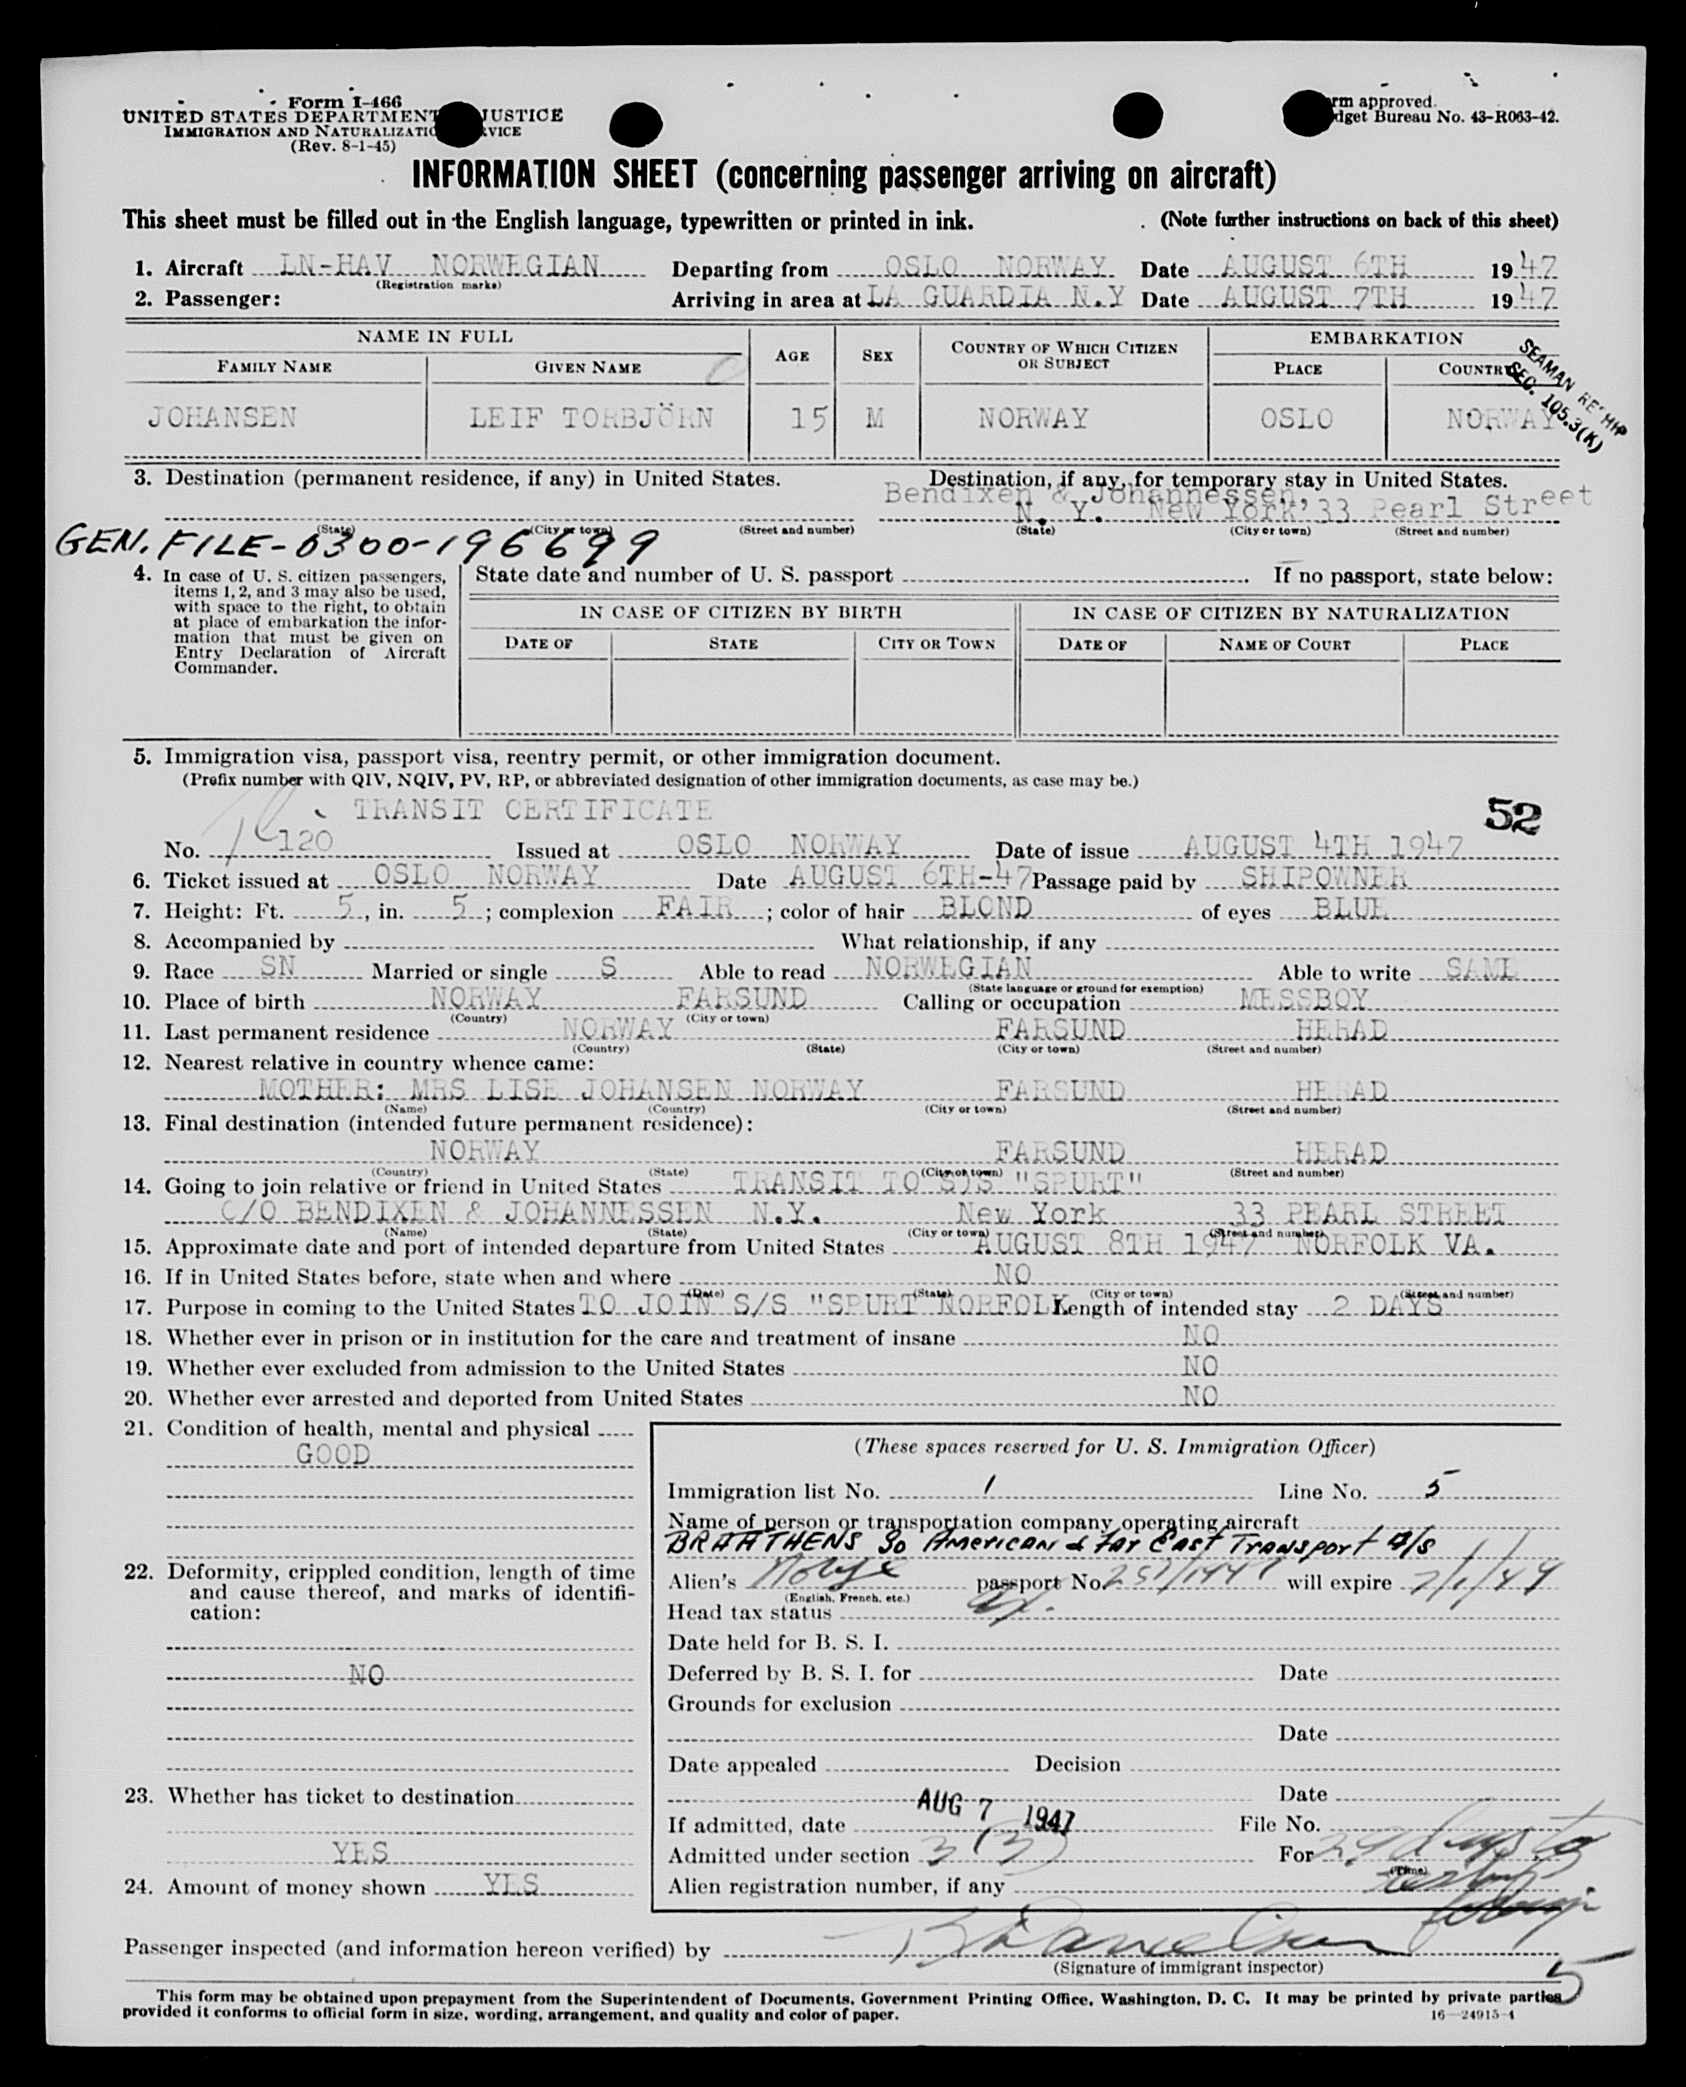 Form I-466
UNITED STATES DEPARTMENT JUSTICE
IMMIGRATION AND NATURALIZATION SERVICE
(Rev. 8-1-45)
Form approved.
Budget Bureau No. 43-R063-42.
INFORMATION SHEET (concerning passenger arriving on aircraft)
This sheet must be filled out in the English language, typewritten or printed in ink. (Note further instructions on back of this sheet)
1. Aircraft LN-HAV NORWEGIAN Departing from OSLO NORWAY Date AUGUST 6TH 1947
(Registration marks)
2. Passenger: Arriving in area at LA GUARDIA N.Y Date AUGUST 7TH 1947
NAME IN FULL AGE SEX COUNTRY OF WHICH CITIZEN OR SUBJECT EMBARKATION
FAMILY NAME GIVEN NAME PLACE COUNTRY
SEAMAN RESHIP
SEC. 105.3(K)
JOHANSEN LEIF TORBJÖRN 15 M NORWAY OSLO NORWAY
3. Destination (permanent residence, if any) in United States. Destination, if any, for temporary stay in United States.
Bendixen & Johannessen,
N. Y. New York, 33 Pearl Street
(State) (City or town) (Street and number) (State) (City or town) (Street and number)
GEN. FILE-0300-196699
4. In case of U. S. citizen passengers, items 1, 2, and 3 may also be used, with space to the right, to obtain at place of embarkation the information that must be given on Entry Declaration of Aircraft Commander.
State date and number of U. S. passport If no passport, state below:
IN CASE OF CITIZEN BY BIRTH IN CASE OF CITIZEN BY NATURALIZATION
DATE OF STATE CITY OR TOWN DATE OF NAME OF COURT PLACE
5. Immigration visa, passport visa, reentry permit, or other immigration document.
(Prefix number with QIV, NQIV, PV, RP, or abbreviated designation of other immigration documents, as case may be.)
TRANSIT CERTIFICATE 52
No. 120 Issued at OSLO NORWAY Date of issue AUGUST 4TH 1947
6. Ticket issued at OSLO NORWAY Date AUGUST 6TH-47 Passage paid by SHIPOWNER
7. Height: Ft. 5, in. 5; complexion FAIR; color of hair BLOND of eyes BLUE
8. Accompanied by What relationship, if any
9. Race SN Married or single S Able to read NORWEGIAN Able to write SAME
(State language or ground for exemption)
10. Place of birth NORWAY FARSUND Calling or occupation MESSBOY
(Country) (City or town)
11. Last permanent residence NORWAY FARSUND HERAD
(Country) (State) (City or town) (Street and number)
12. Nearest relative in country whence came:
MOTHER: MRS LISE JOHANSEN NORWAY FARSUND HERAD
(Name) (Country) (City or town) (Street and number)
13. Final destination (intended future permanent residence):
NORWAY FARSUND HERAD
(Country) (State) (City or town) (Street and number)
14. Going to join relative or friend in United States TRANSIT TO S/S "SPURT"
C/O BENDIXEN & JOHANNESSEN N.Y. New York 33 PEARL STREET
(Name) (State) (City or town) (Street and number)
15. Approximate date and port of intended departure from United States AUGUST 8TH 1947 NORFOLK VA.
16. If in United States before, state when and where NO
(Date) (State) (City or town) (Street and number)
17. Purpose in coming to the United States TO JOIN S/S "SPURT" NORFOLK Length of intended stay 2 DAYS
18. Whether ever in prison or in institution for the care and treatment of insane NO
19. Whether ever excluded from admission to the United States NO
20. Whether ever arrested and deported from United States NO
21. Condition of health, mental and physical
GOOD
(These spaces reserved for U. S. Immigration Officer)
Immigration list No. 1 Line No. 5
Name of person or transportation company operating aircraft
BRAATHENS So American & Far East Transport A/S
22. Deformity, crippled condition, length of time and cause thereof, and marks of identification:
NO
Alien's Norge passport No. will expire
(English, French, etc.)
Head tax status
Date held for B. S. I.
Deferred by B. S. I. for Date
Grounds for exclusion
Date
Date appealed Decision
23. Whether has ticket to destination
YES
Date
If admitted, date AUG 7 1947 File No.
Admitted under section 3(3) For 29 days to
(Time)
24. Amount of money shown YES
Alien registration number, if any
Passenger inspected (and information hereon verified) by
(Signature of immigrant inspector)
5
This form may be obtained upon prepayment from the Superintendent of Documents, Government Printing Office, Washington, D. C. It may be printed by private parties
provided it conforms to official form in size, wording, arrangement, and quality and color of paper.
16—24915-1